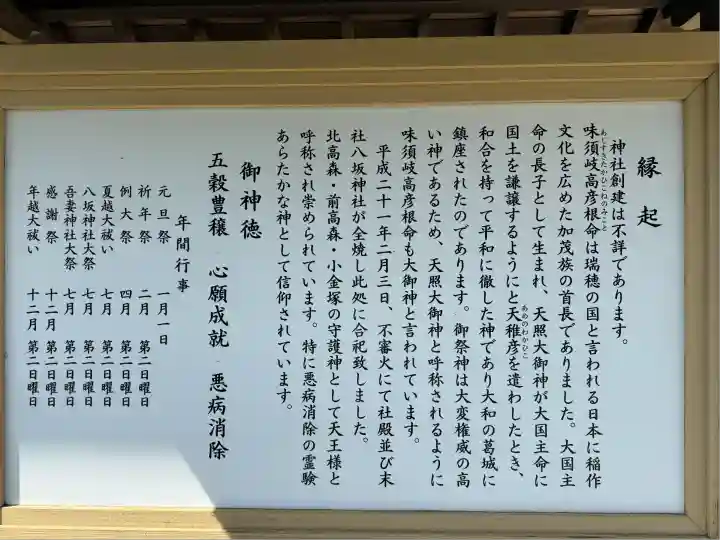 縁起
神社創建は不詳であります。
味須岐高彦根命は瑞穂の国と言われる日本に稲作
あしすきたかひこねのみこと
文化を広めた加茂族の首長でありました。大国主
命の長子として生まれ、天照大御神が大国主命に
国土を謙譲するようにと天稚彦を遣わしたとき、
あめのわかひこ
和合を持って平和に徹した神であり大和の葛城に
鎮座されたのであります。御祭神は大変権威の高
い神であるため、天照大御神と呼称されるように
味須岐高彦根命も大御神と言われています。
平成二十一年二月三日、不審火にて社殿並び末
社八坂神社が全焼し此処に合祀致しました。
北高森・前高森・小金塚の守護神として天王様と
呼称され崇められています。特に悪病消除の霊験
あらたかな神として信仰されています。
御神徳
五穀豊穣 心願成就 悪病消除
年間行事
元旦祭 一月一日
祈年祭 二月 第二日曜日
例大祭 四月 第二日曜日
夏越大祓い 七月 第二日曜日
八坂神社大祭 七月 第二日曜日
吾妻神社大祭 七月 第二日曜日
感謝祭 十二月 第二日曜日
年越大祓い 十二月 第二日曜日